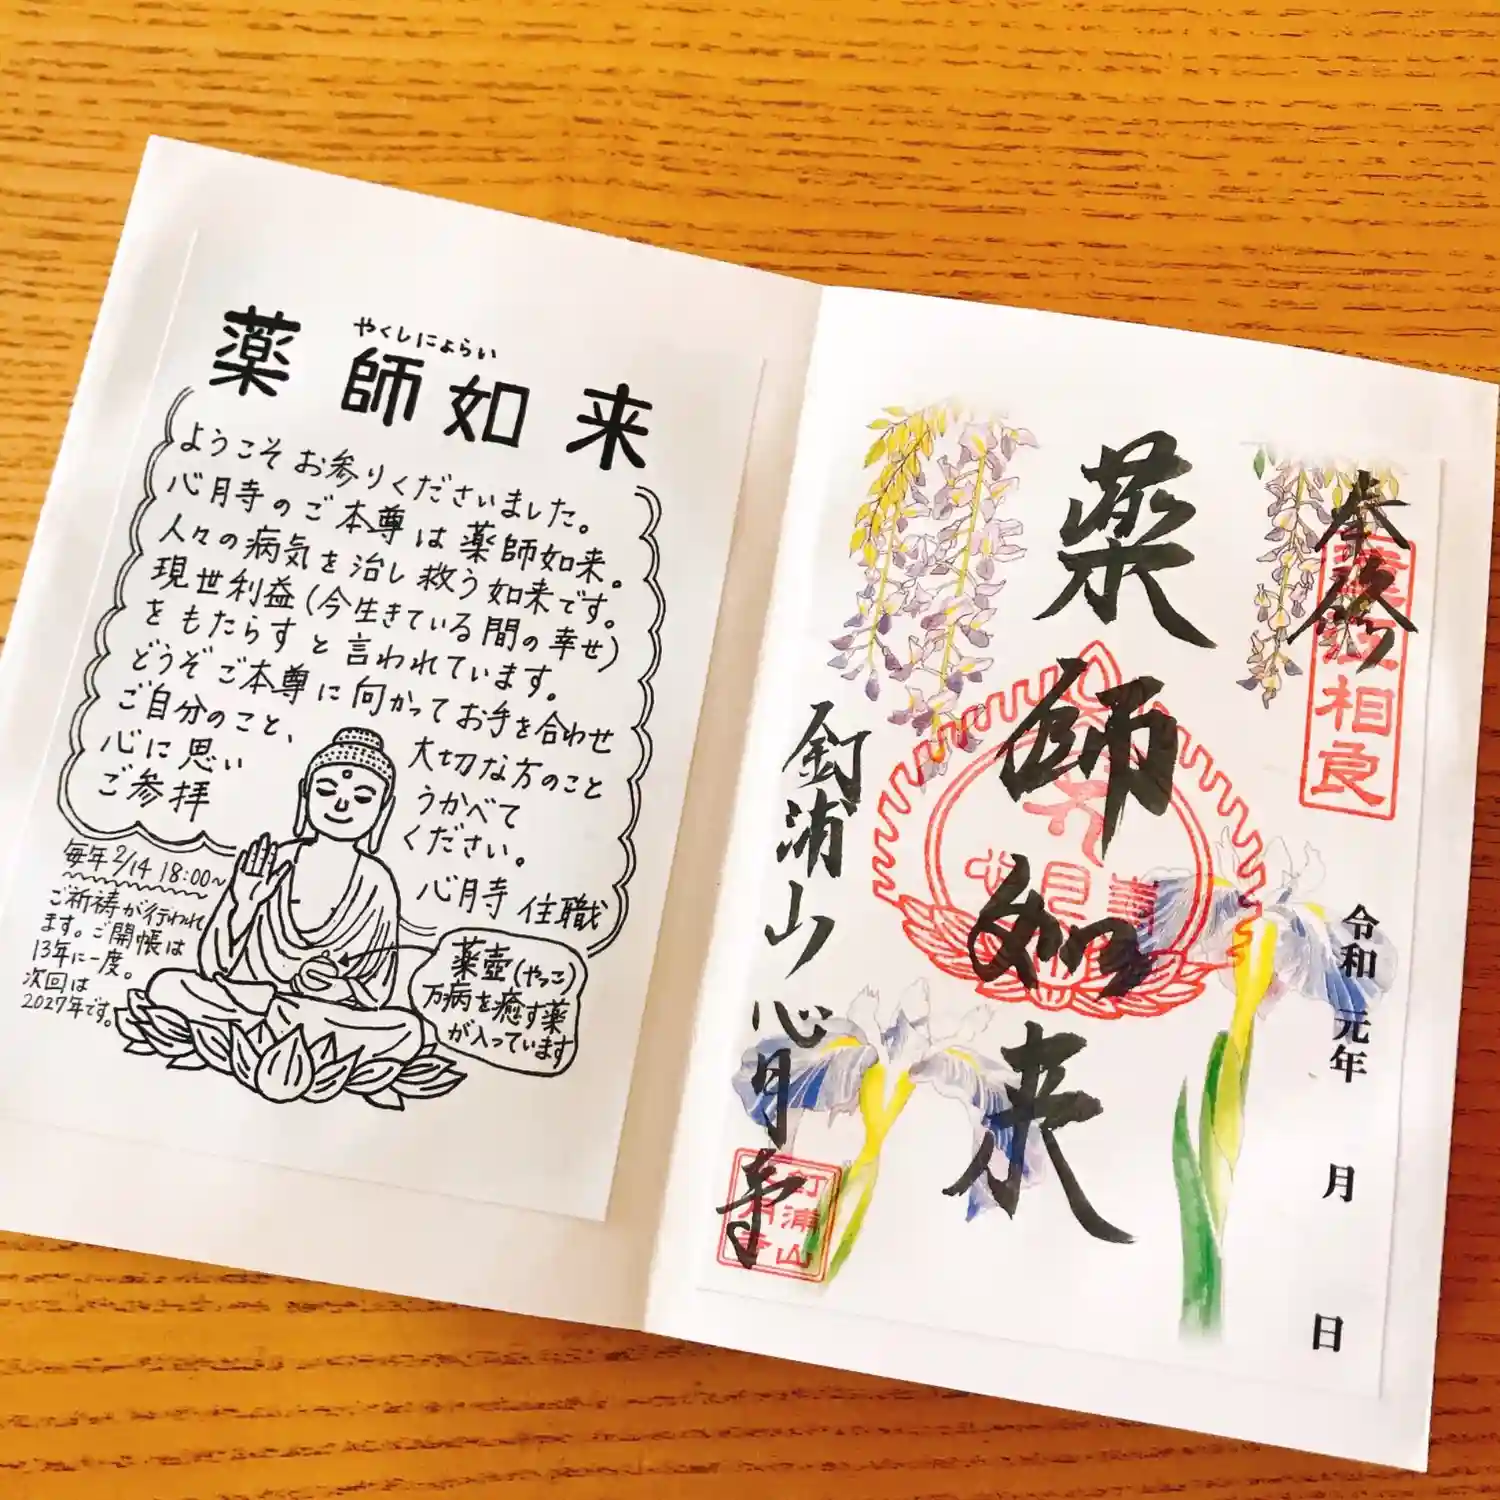 やくしにょらい
薬師如来
ようこそお参りくださいました。
心月寺のご本尊は薬師如来。
人々の病気を治し救う如来です。
現世利益(今生きている間の幸せ)
をもたらすと言われています。
どうぞご本尊に向かってお手を合わせ
ご自分のこと、大切な方のこと
心に思いうかべて
ご参拝ください。
心月寺 住職
毎年2/14 18:00~
ご祈祷が行われ
ます。ご開帳は
13年に一度。
次回は
2027年です。
薬壺(やっこ)
万病を癒す薬
が入っています
奉修
相良
令和元年 月 日
薬師如来
釘浦山 心月寺
釘浦山
心月寺